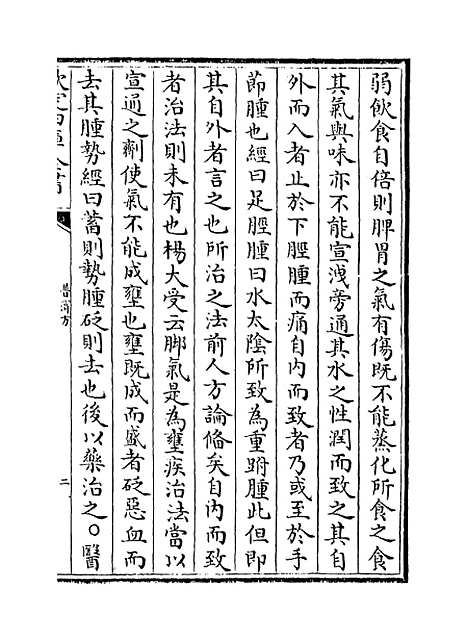 弱飲食自倍則脾胃之氣有傷既不能蒸化所食之食
其氣與味亦不能宣洩旁通其水之性潤而致之其自
外而入者止於下脛腫而痛自内而致者乃或至於手
節腫也經曰足脛腫曰水太陰所致為重跗腫此但即
其自外者言之也所治之法前人方論備矣自内而致
者治法則未有也楊大受云脚氣是為壅疾治法當以
宣通之劑使氣不能成壅也壅既成而盛者砭惡血而
去其腫勢經曰蓄則勢腫砭則去也後以藥治之〇醫
欽定四庫全書
普濟方
二